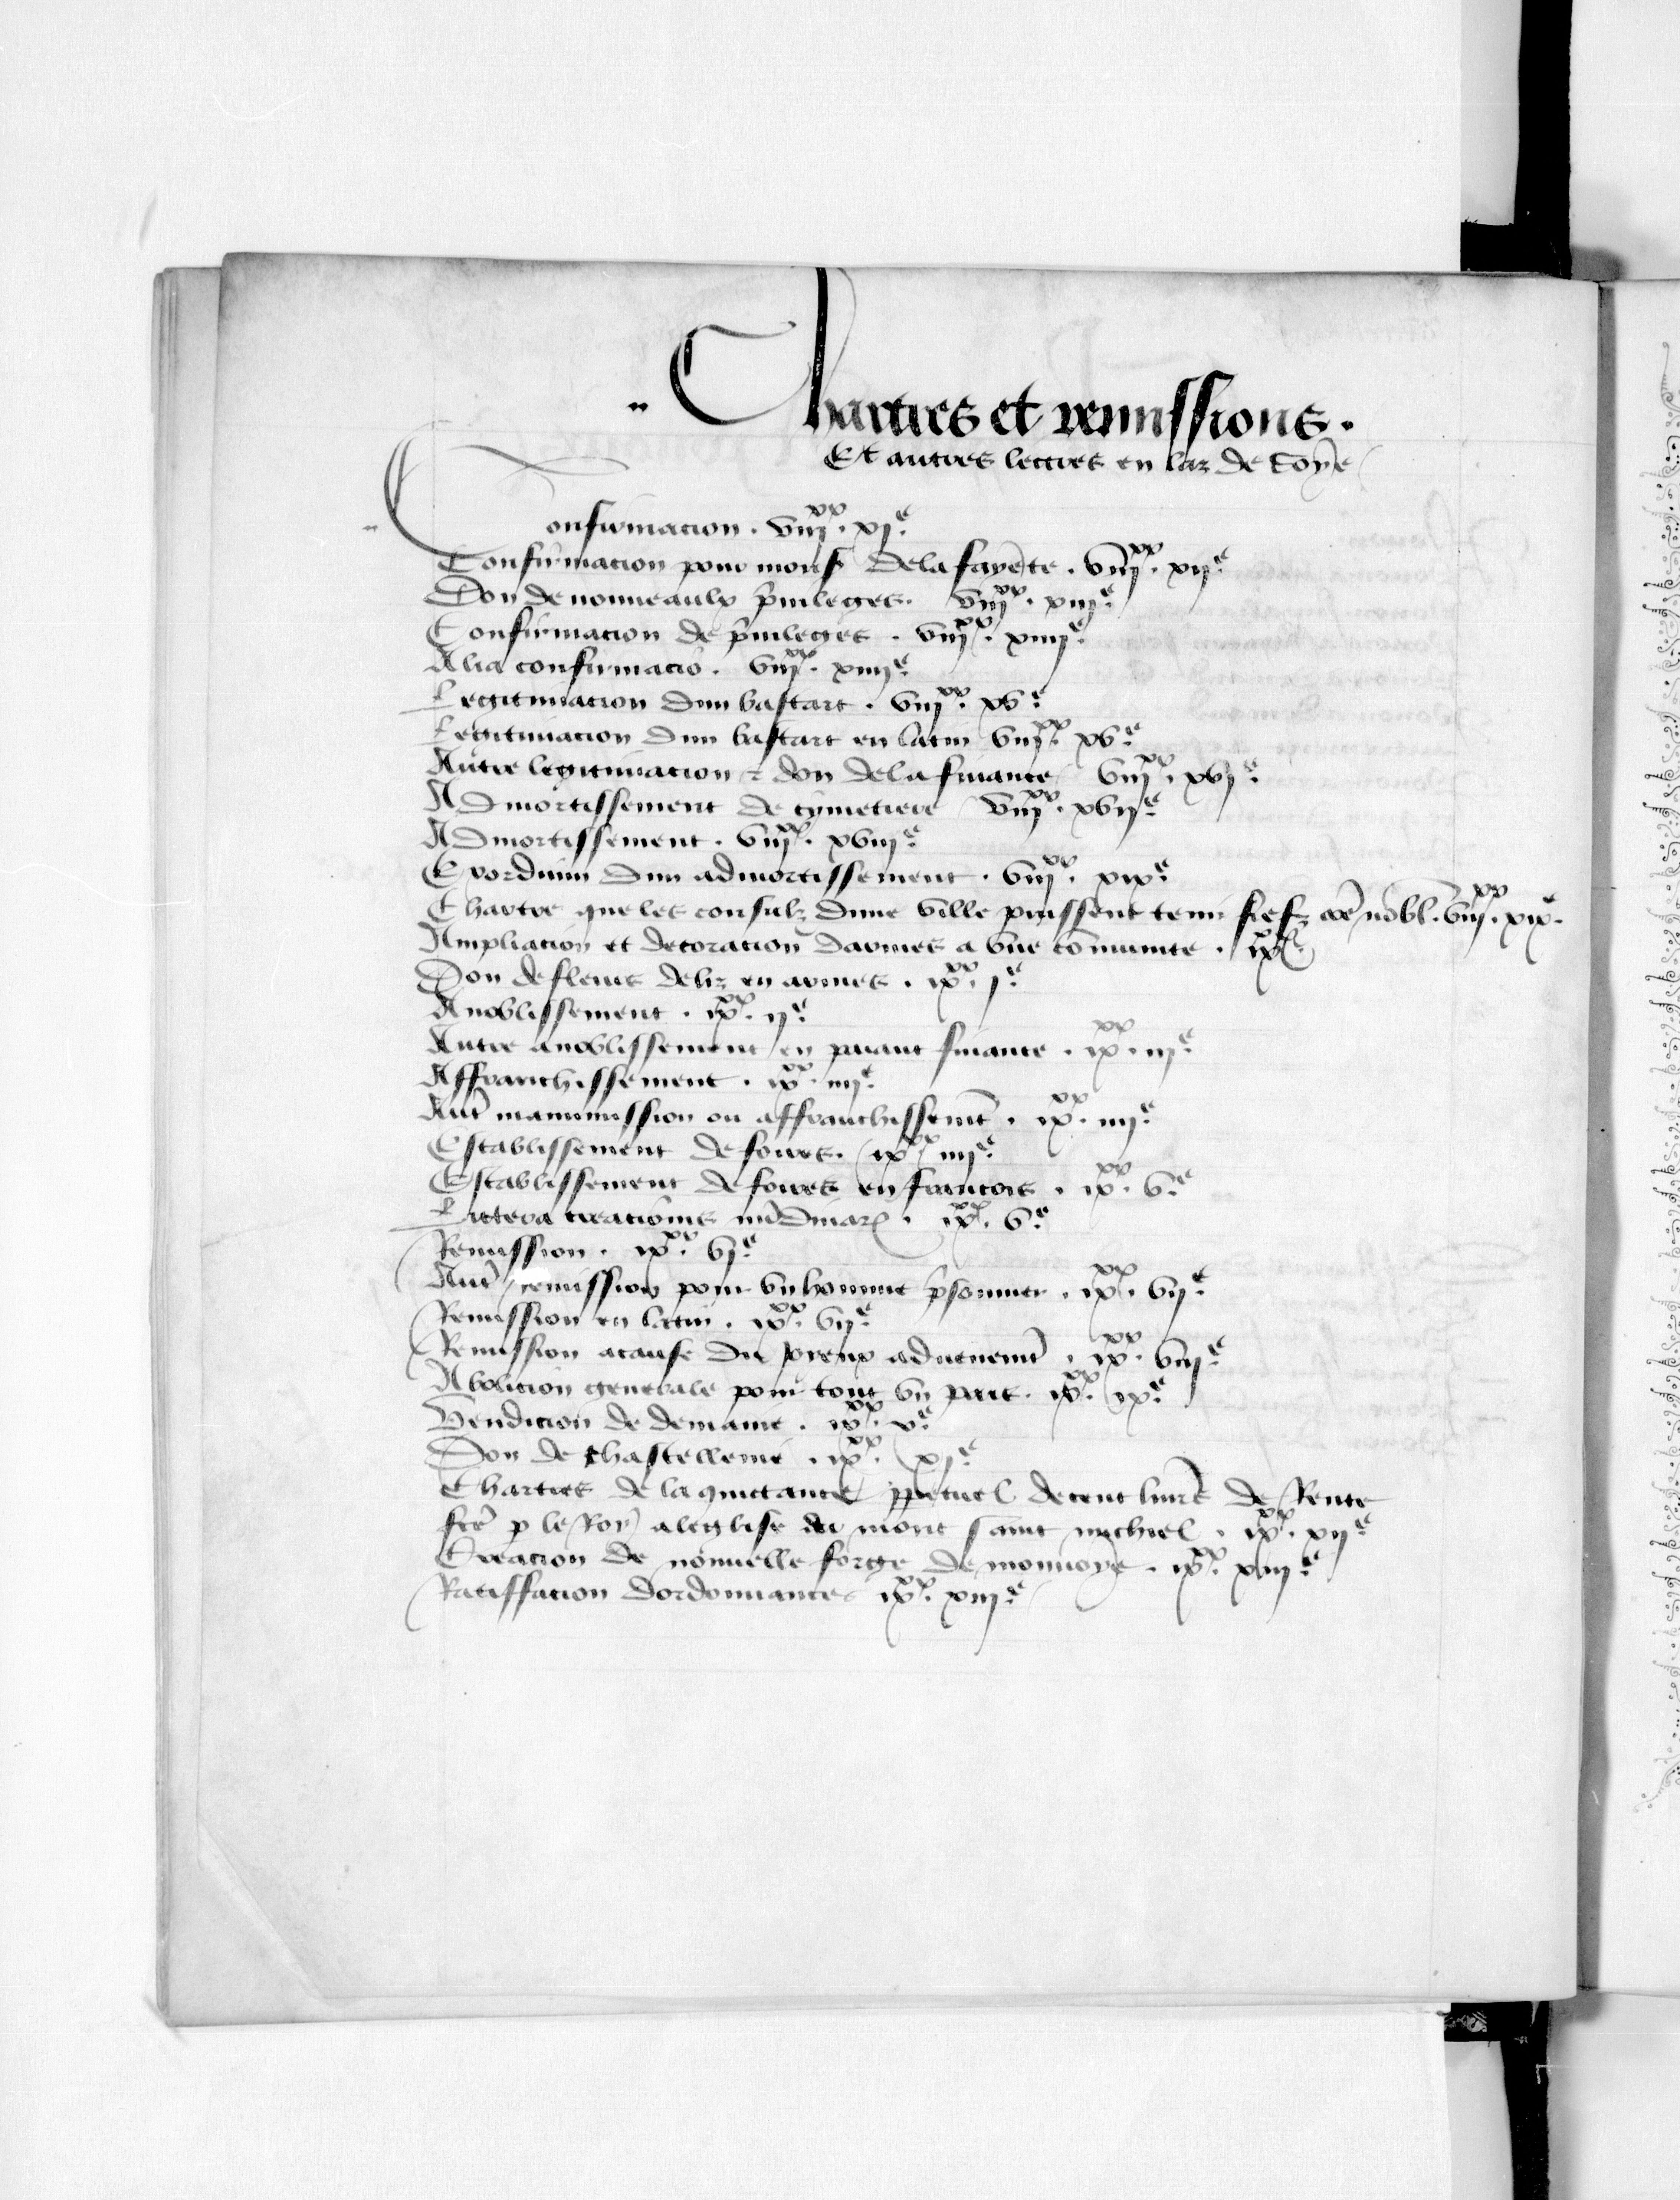 Chartres et remissions.
Et autres lectres en laz de soye
Confirmacion . viijxx. xje
Confirmacion pour mons' de la fayecte . viijxx. xije
Don de nouueaulx p̃uileges . viijxx. xiije
Confirmacion de p̃uileges . viijxx. xiiije
Alia confirmacio . viijxx. xiiije
Legitimacion dun bastart . viijxx. xve
Legitimacion dun bastart en latin viijxx. xve
Autre legitimacion & don de la finance viijxx. xvje
Admortissement de cymetiere viijxx. xvije
Admortissement . viijxx. xviije
Exordium dun admortissement . viijxx. xixe
Chartre que les consulz dune ville puissent tenir fiefz nobl. viijxx. xixe
Ampliacion et decoracion darmes a vne cõmunite . ixxx.
Don de fleurs de liz en armes . ixxx. je
Anoblissement . ixxx. ije
Autre anoblissement en paiant finance . ixxx. iije
Affranchissement . ixxx. iiije
Aut̃ manumission ou affranchissemẽt . ixxx. iiije
Establissement de foires . ixxx. iiije
Establissement de foires en francois . ixxx. ve
Littera creationis nũdinar . ixxx. ve
Remission . ixxx. vje
Aut̃ remission pour vn homme p̃sonnier . ixxx. vije
Remission en latin . ixxx. vije
Remission a cause du joyeux aduenemẽt . ixxx. viije
Abolicion generale pour tout vn pais . ixxx. ixe
Vendicion de demaine . ixxx. xe
Don de chastellenie . ixxx. xje
Chartres de la quictance ꝑpetuel de cent liures de Rente
fcẽ ꝑ le Roy a leglise du mont saint michiel . ixxx. xije
Creacion de nouuelle forge de monnoye . ixxx. xiije
Ratifficacion dordonnances ixxx. xiije